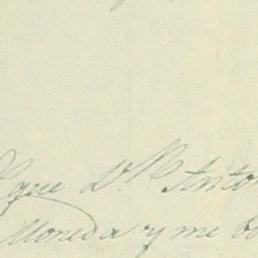 que Dn. Anton
Moneda y me